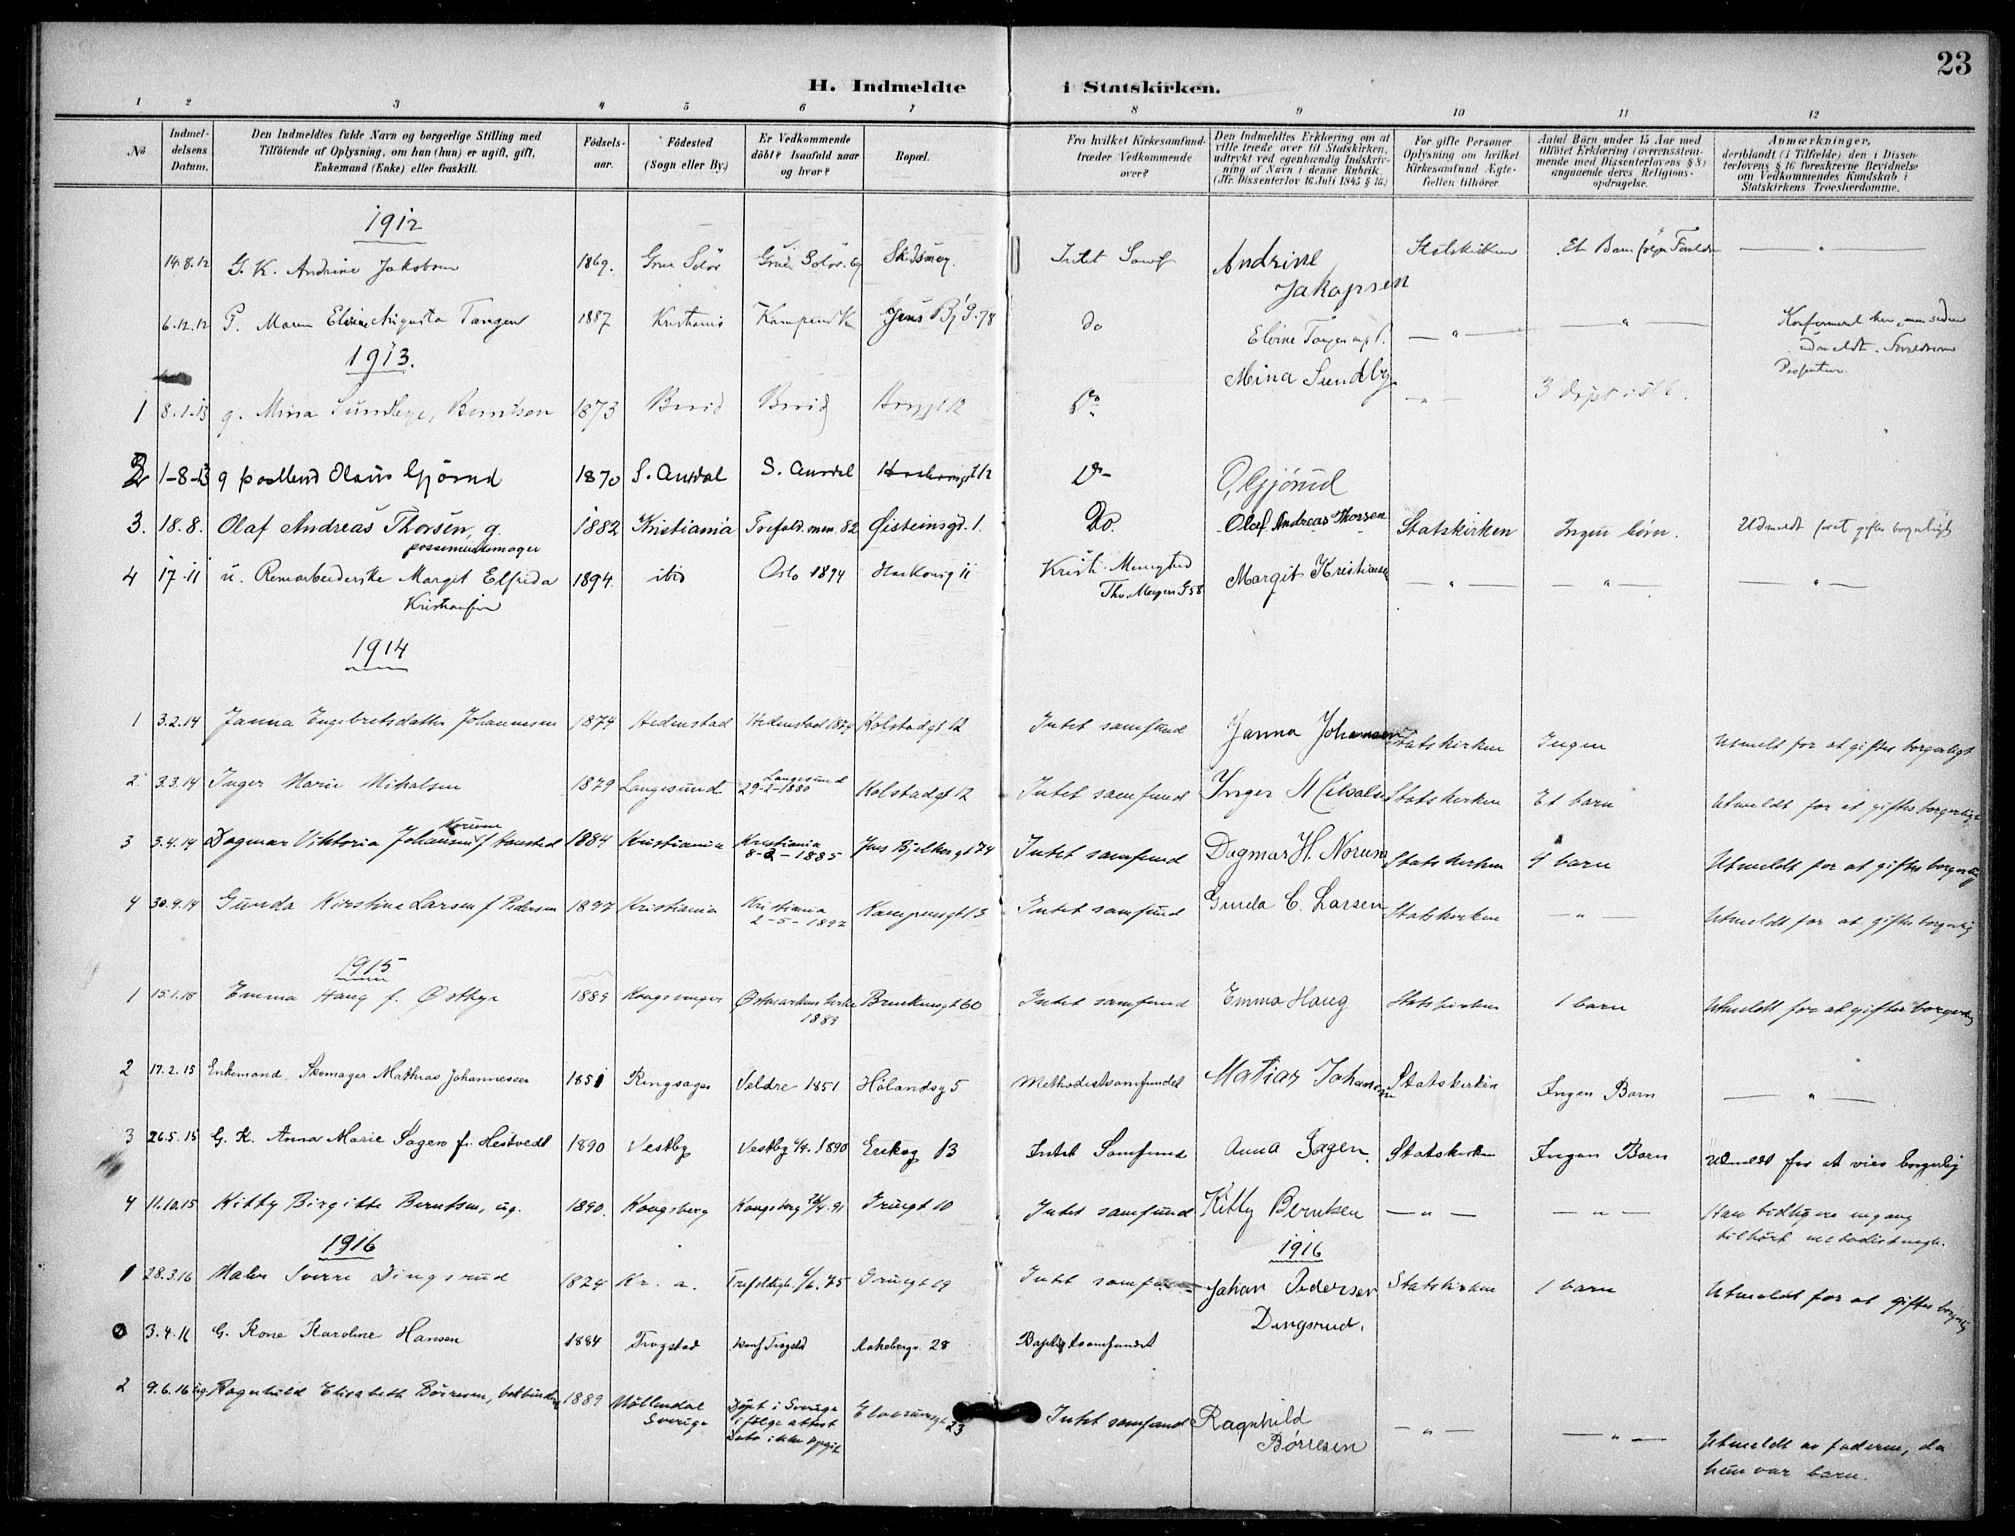 23
H. Indmeldte i Statskirken.
1 2 3 4 5 6 7 8 9 10 11 12
No
Indmel-
delsens
Datum.
Den Indmeldtes fulde Navn og borgerlige Stilling med
Tilföiende af Oplysning, om han (hun) er ugift, gift,
Enkemand (Enke) eller fraskilt.
Födsels-
aar.
Födested
(Sogn eller By.)
Er Vedkommende
döbt? Isaafald naar
og hvor?
Bopæl.
Fra hvilket Kirkesamfund
træder Vedkommende
over?
Den Indmeldtes Erklæring om at
ville træde over til Statskirken,
udtrykt ved egenhændig Indskriv-
ning af Navn i denne Rubrik.
(Jfr. Dissenterlov 16 Juli 1845 § 16.)
For gifte Personer
Oplysning om hvilket
Kirkesamfund Ægte-
fællen tilhörer.
Antal Börn under 15 Aar med
tilföiet Erklæring (overensstem-
mende med Dissenterlovens § 8)
angaaende deres Religions-
opdragelse.
Anmærkninger,
deriblandt (i Tilfælde) den i Dissen-
terlovens § 16 foreskrevne Bevidnelse
om Vedkommendes Kundskab i
Statskirkens Troeslærdomme.
1912
14.8.12 G. K. Andrine Jakobsen 1869. Grue Solör Grue Solör Intet Samf Andrine Jakopsen Statskirken Et Barn — " —
6.12.12 P. Maren Elvine Augusta Tangen 1887 Kristiania Jens Bj G. 78 do Elvine Tangen — " — — " —
1913.
1 8.1.13 g. Mina Sundbye, Berntsen 1873 Do Mina Sundby — " — 3 döpt
2 1-8-13 g Olaus Gjörud 1870 S. Aurdal S. Aurdal 12 Do O. Gjörud
3. 18.8. Olaf Andreas Thorsen, g. 1882 Kristiania Trefold. men. 82 Øisteinsgd. 1. Do. Olaf Andreas Thorsen Statskirken Ingen börn. Udmeldt giftes borgerligt
4 17.11 u. Margit Elfrida 1894. ibid Oslo 1894 11 Margit Kristiansen — " — — " — — " —
1914
1 3.2.14 Janna Engebretsdatter Johannesen 1874 Hedenstad Hedenstad 1874 Kolstadgt 12 Intet samfund Janna Johansen Statskirken Ingen Utmeldt for at giftes borgerligt
2 3.3.14 Inger Marie Mikalsen 1879 Langesund Langesund 29-2-1880 Kolstadgt 12 Intet samfund Inger Statskirken Et barn Utmeldt for at giftes borgerligt
3 3.4.14 Dagmar Viktoria Johansen Norum f 1884 Kristiania Kristiania 8-2-1885 Jens Bjelkesgt 74 Intet samfund Dagmar H. Norum Statskirken 4 barn Utmeldt for at giftes borgerlig
4 30.9.14 Gunda Kirstine Larsen f Pedersen 1897 Kristiania Kristiania 2-5-1897 Kampensgt 13 Intet samfund Gunda C. Larsen Statskirken — " — Utmeldt for at giftes borgerlig
1915
1 15.1.15 Emma Haug f. Østbye 1889 Kongsvinger Østmarkens kirke 1889 60 Intet samfund Emma Haug Statskirken 1 barn Utmeldt for at giftes borgerlig
2 17.2.15 Enkemand. Skomager Mathias Johannessen 1851 Ringsager Veldre 1851 Hölandsg 5 Methodistsamfundet Matias Johansen Statskirken Ingen Barn — " —
3 26.5.15 G. K. Anna Marie Sagen f. Hestvedt 1890 Vestby Vestby 1890 Eriksg 13 Intet Samfund Anna Sagen. Statskirken Ingen Barn Udmeldt for at vies borgerlig
4 11.10.15 Kitty Birgitte Berntsen, ug. 1890. Kongsberg Kongsberg 91 Grüngt 10 Intet samfund Kitty Berntsen — " — — " — Har tidligere engang
tilhört metodistmegh.
1916 1916
1 28.3.16 Sverre Dingsrud 1824 Kr. a. Trefoldigh. 75 Grüngt 19 Intet samfund Johan Pedersen
Dingsrud. Statskirken 1 barn Utmeldt for at giftes borgerlig
0 3.4.16 G. Kone Karoline Hansen 1884 Trogstad Konf Trogstd Aakebergv. 28 Baptistsamfundet
2 9.6.16 ug. Ragnhild Elisabeth Börresen, 1889 Möllendal
Sverige Döpt i Sverige
ifölge attest
Dato ikke opgit Elverumsgt 23 Intet samfund Ragnhild
Börresen — " — — " — Utmeldt av faderen, da
hun var barn.